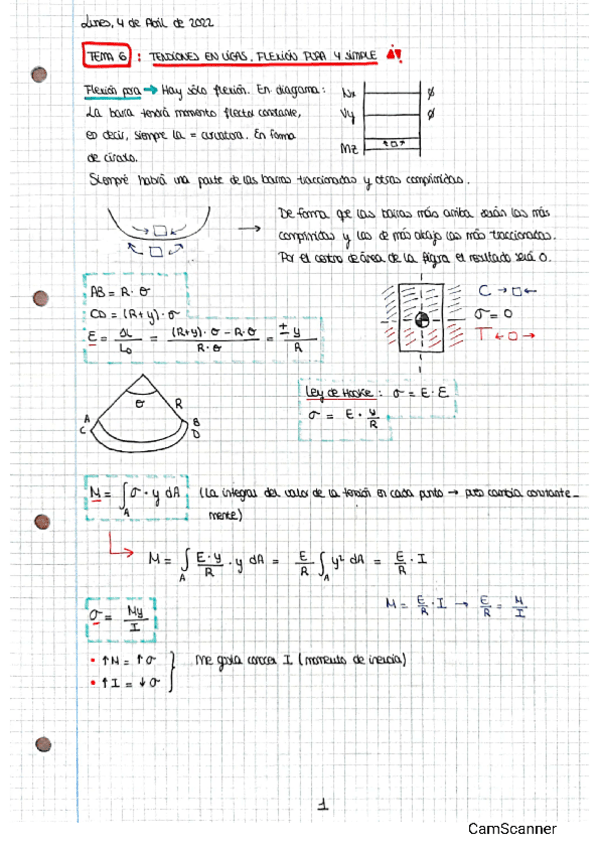 Lunes, 4 de Abril de 2022
TEMA 6 : TENSIONES EN VIGAS. FLEXIÓN PURA Y SIMPLE
Flexión pura → Hay sólo flexión. En diagrama:
La barra tendrá momento flector constante,
es decir, siempre la = curvatura. En forma
de círculo.
Nx ∅
Vy ∅
Mz
Siempre habrá una parte de las barras traccionadas y otras comprimidas.
→ De forma que las barras más arriba serán las más
comprimidas y las de más abajo las más traccionadas.
Por el centro de área de la figura el resultado será 0.
AB = R · θ
CD = (R+y) · θ
ε = ΔL / L₀ = (R+y) · θ - R · θ / R · θ = ± y / R
C → □ ←
σ = 0
T ← □ →
θ R
A B
C D
Ley de Hooke : σ = E · ε
σ = E · y / R
M = ∫A σ · y dA (La integral del valor de la tensión en cada punto → pues cambia constante-
mente)
M = ∫A E · y / R · y dA = E / R ∫A y² dA = E / R · I
M = E / R · I → E / R = M / I
σ = My / I
• ↑M = ↑σ
• ↑I = ↓σ
Me guía conocer I (momento de inercia)
1
CamScanner